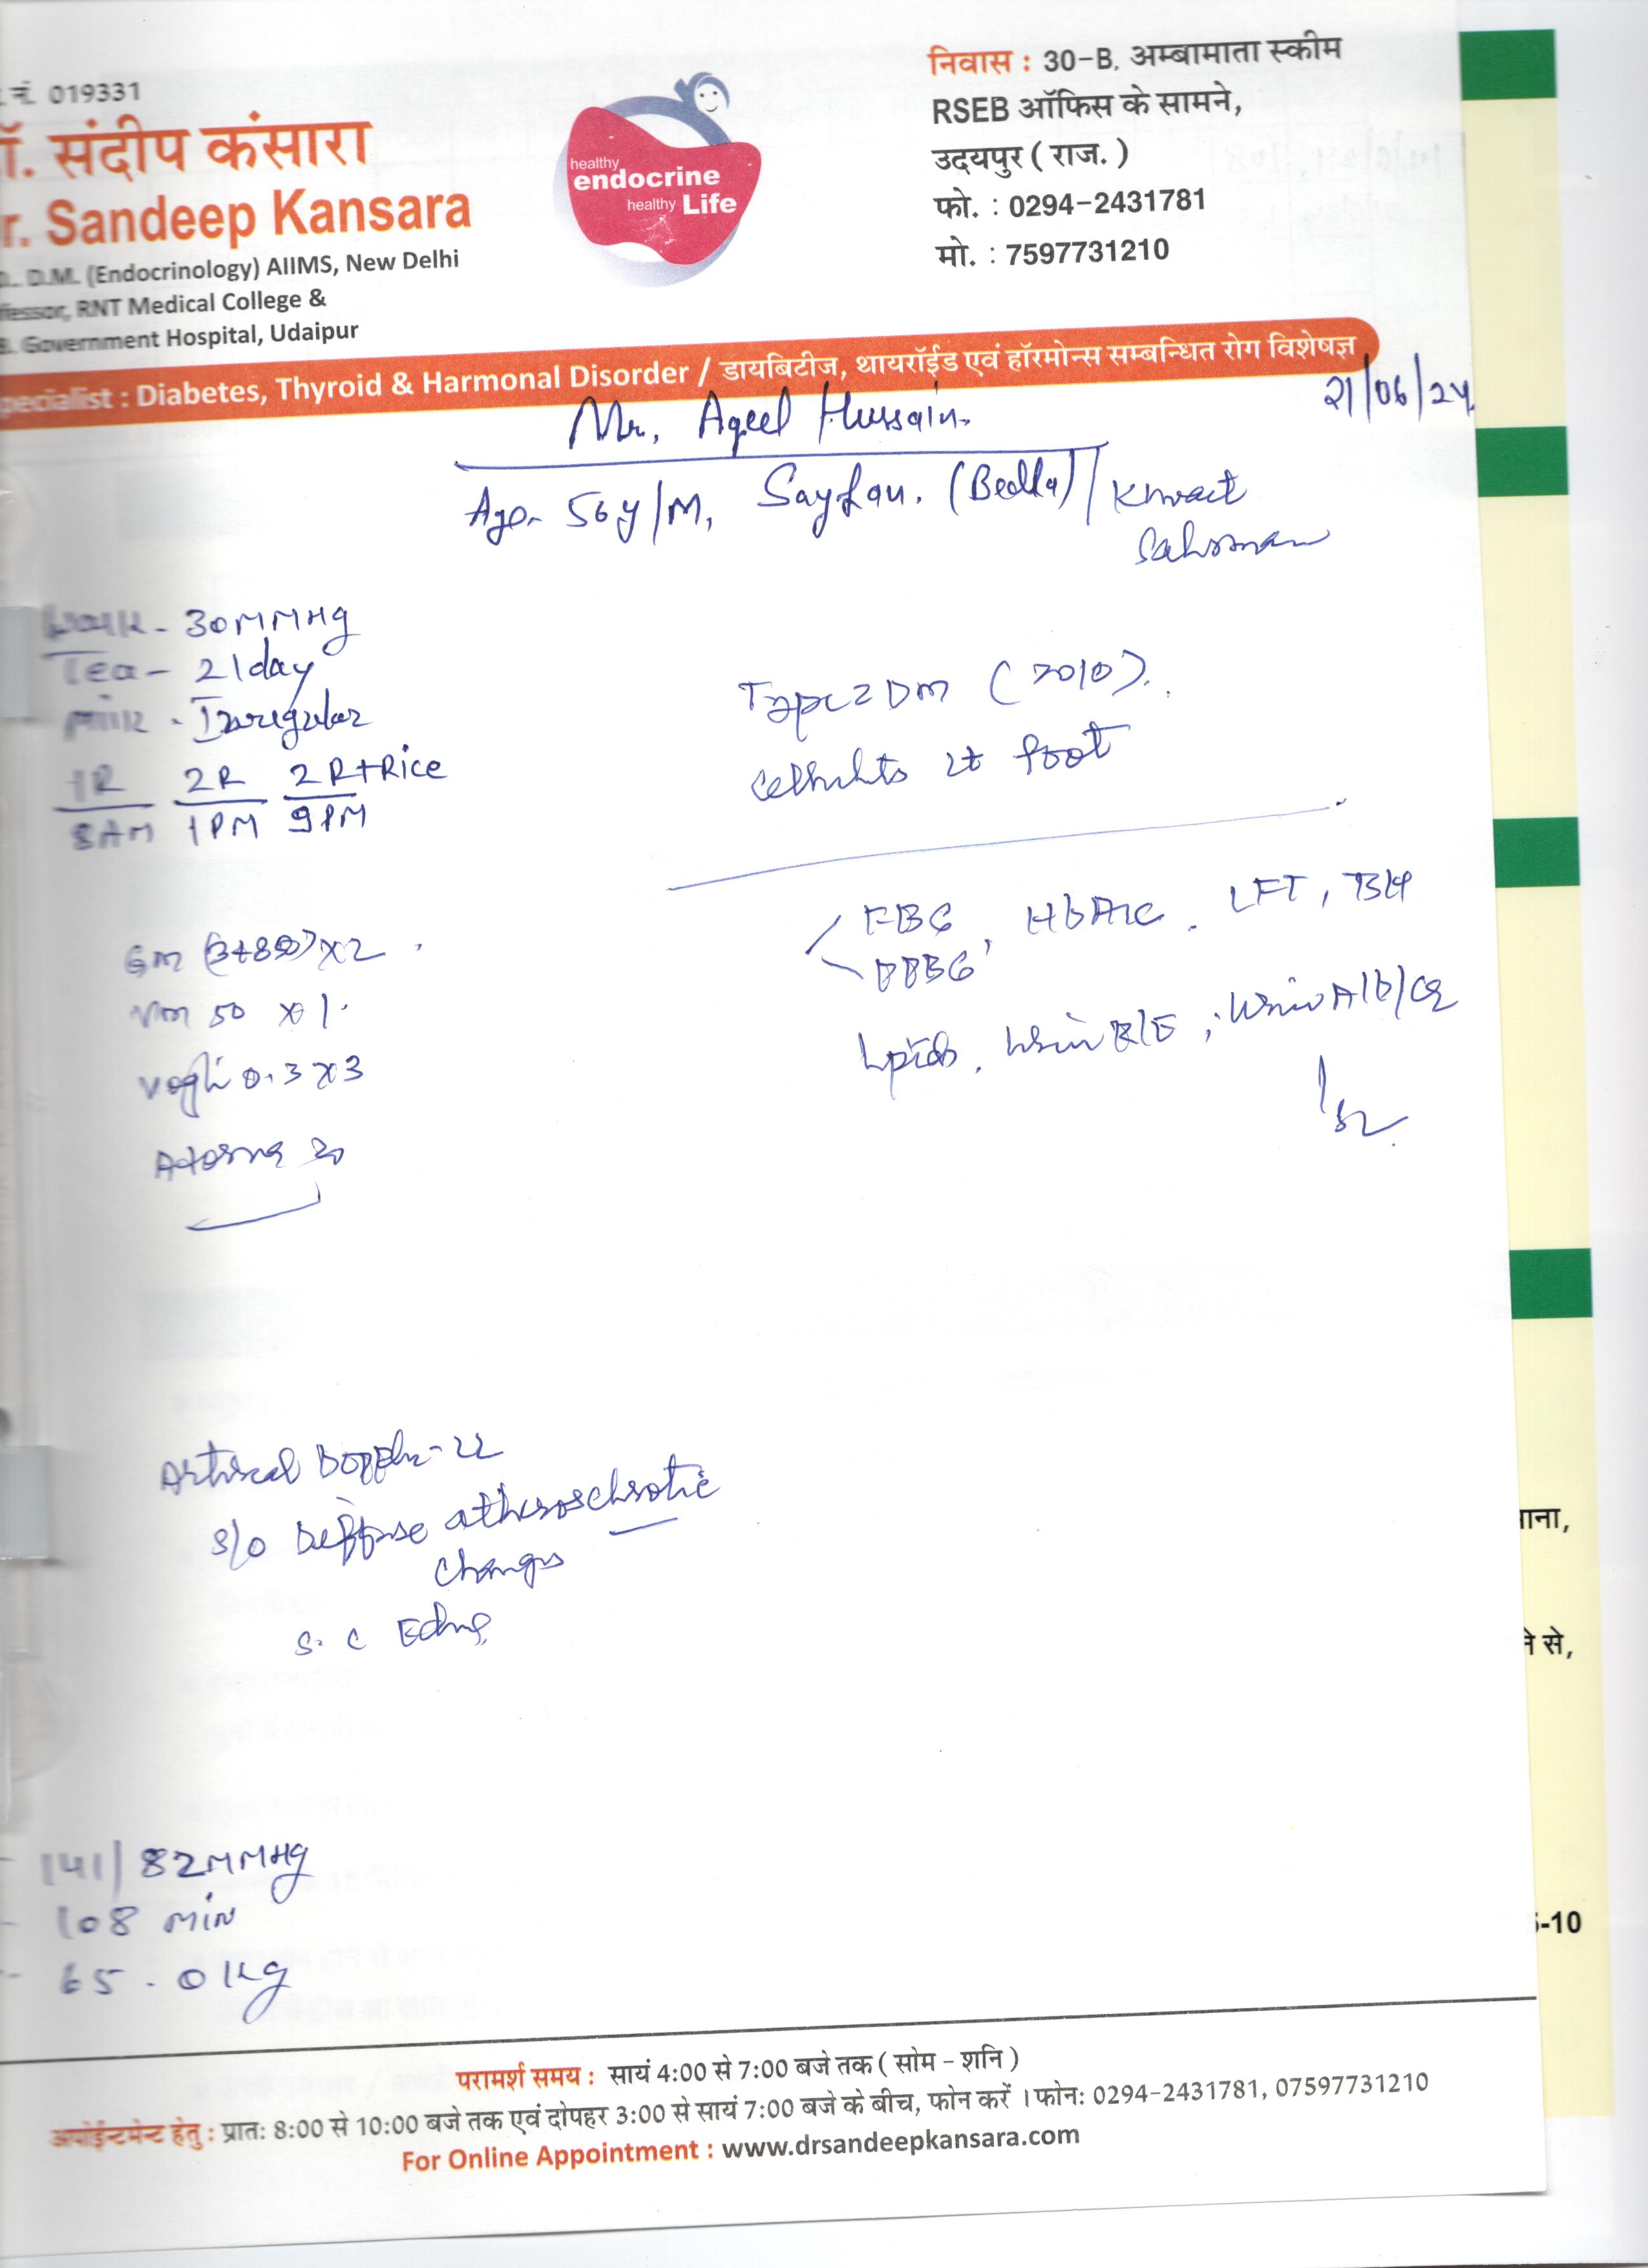 नं. 019331
ॉ. संदीप कंसारा
r. Sandeep Kansara
D.M. (Endocrinology) AIIMS, New Delhi
fessor, RNT Medical College &
B. Government Hospital, Udaipur
healthy
endocrine
healthy Life
निवास : 30-B, अम्बामाता स्कीम
RSEB ऑफिस के सामने,
उदयपुर ( राज. )
फो. : 0294-2431781
मो. : 7597731210
pecialist : Diabetes, Thyroid & Harmonal Disorder / डायबिटीज, थायरॉईड एवं हॉरमोन्स सम्बन्धित रोग विशेषज्ञ
21/06/24
Mr. Aqeel Hussain.
Age- 56y/M, (Bedla) / Kuwait
Walk - 30MMHg
Tea - 2/day
Milk - Irregular
1R 2R 2R+Rice
8AM 1PM 9PM
Type 2 DM (2010).
Cellulitis foot
FBG, HbA1c, LFT,
PPBG
Lipids, Urine R/E, Urine Alb/Cr
GM x2
50 x 1
Vogli 0.3 x 3
20
Arterial Doppler -
S/o Diffuse atherosclerotic
changes
S. C Edema
141/82MMHg
108 MIN
65.0 Kg
ाना,
ने से,
-10
परामर्श समय : सायं 4:00 से 7:00 बजे तक ( सोम - शनि )
अपोईन्टमेन्ट हेतु : प्रातः 8:00 से 10:00 बजे तक एवं दोपहर 3:00 से सायं 7:00 बजे के बीच, फोन करें । फोन: 0294-2431781, 07597731210
For Online Appointment : www.drsandeepkansara.com